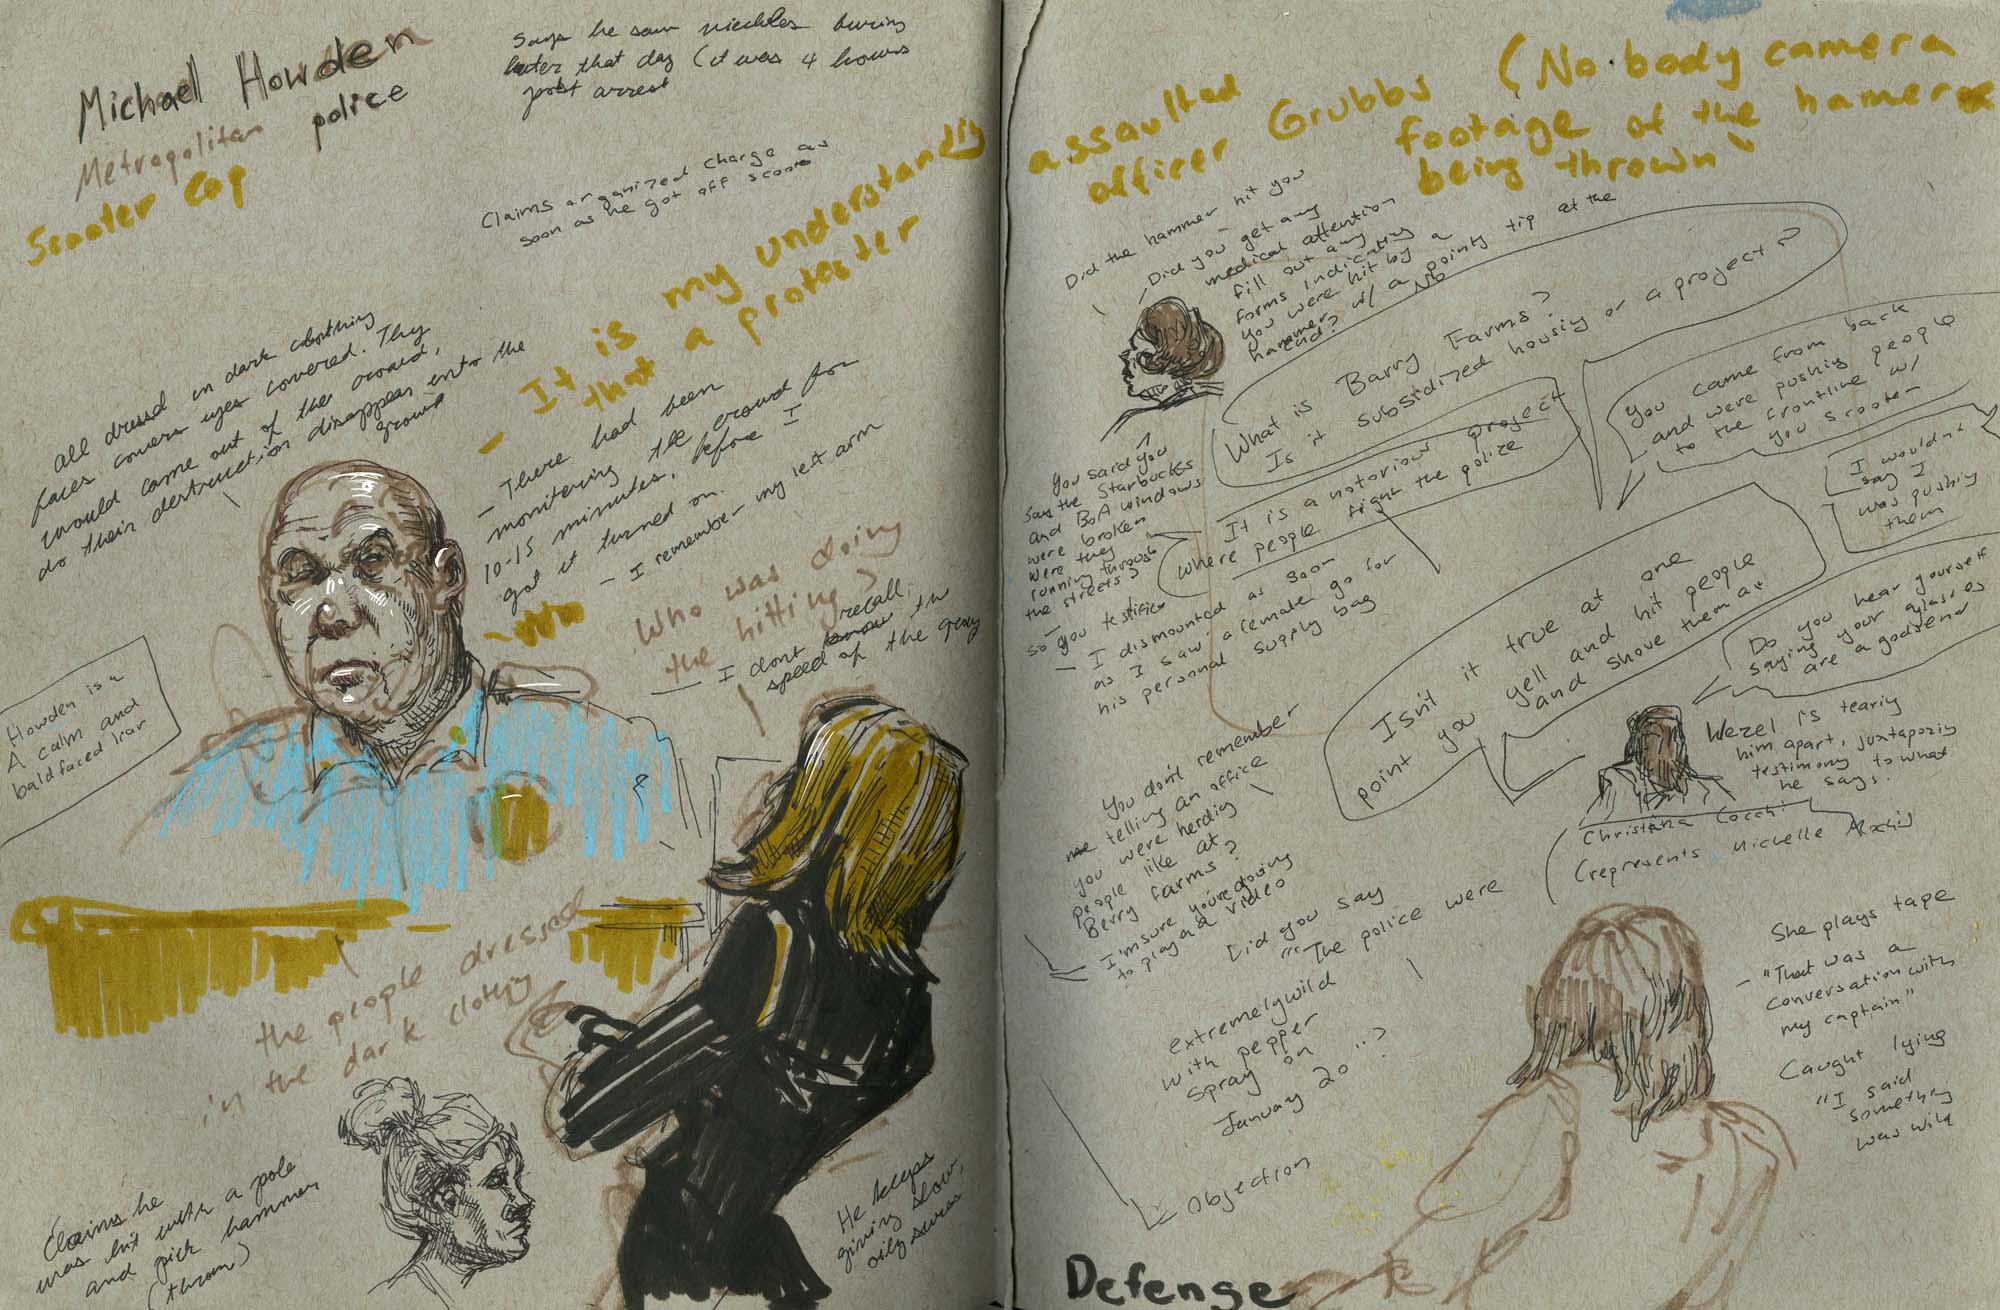 Michael Howden
Metropolitan police
Scooter Cop
Says he saw viechles buring
later that day (it was 4 hours
post arrest
Claims organized charge as
soon as he got off scooter
- It is my understandig
that a protester
all dressed in dark clothing
faces covered eyes covered. They
would come out of the crowd,
do their destruction disappear into the
group
- There had been
monitering the crowd for
10-15 minutes, before I
got it turned on.
- I remember my left arm
Who was doing
the hitting?
- I dont recall
know the
speed of the group
Howden is a
A calm and
baldfaced liar
the people dressed
in the dark clothig
Claims he
was hit with a pole
and pick hammer
(thrown)
He keeps
giving slow,
oily
assaulted
officer Grubbs (No body camera
footage of the hamer
being thrown
Did the hammer hit you
- Did you get any
medical attention
fill out any
forms indicating
you were hit by a
hammer w/ a pointy tip at the
end?
No
What is Barry Farms?
Is it subsidized housig or a project?
It is a notoriour project
where people fight the police
You came from back
and were pushing people
to the frontline w/
you scooter
I wouldn't
say I
was pushig
them
You said you
say the Starbucks
and BoA windows
were broken
were they
running through
the streets?
so you testifier
- I dismounted as soon
as I saw a female go for
his personal supply bag
Isn't it true at one
point you yell and hit people
and shove them at
Do you hear yourself
saying your
are a godsend
Wezel is tearig
him apart, juxtaposig
testimony to what
he says.
Christina Cocchi
(represents Michelle
You don't remember
me telling an office
you were herdig
people like at
Berry farms?
I'm sure you're going
to play a video
Did you say
"The police were
extremely wild
with pepper
spray on
January 20"?
Objection
She plays tape
- "That was a
conversation with
my captain"
Caught lying
"I said
something
was wild
Defense